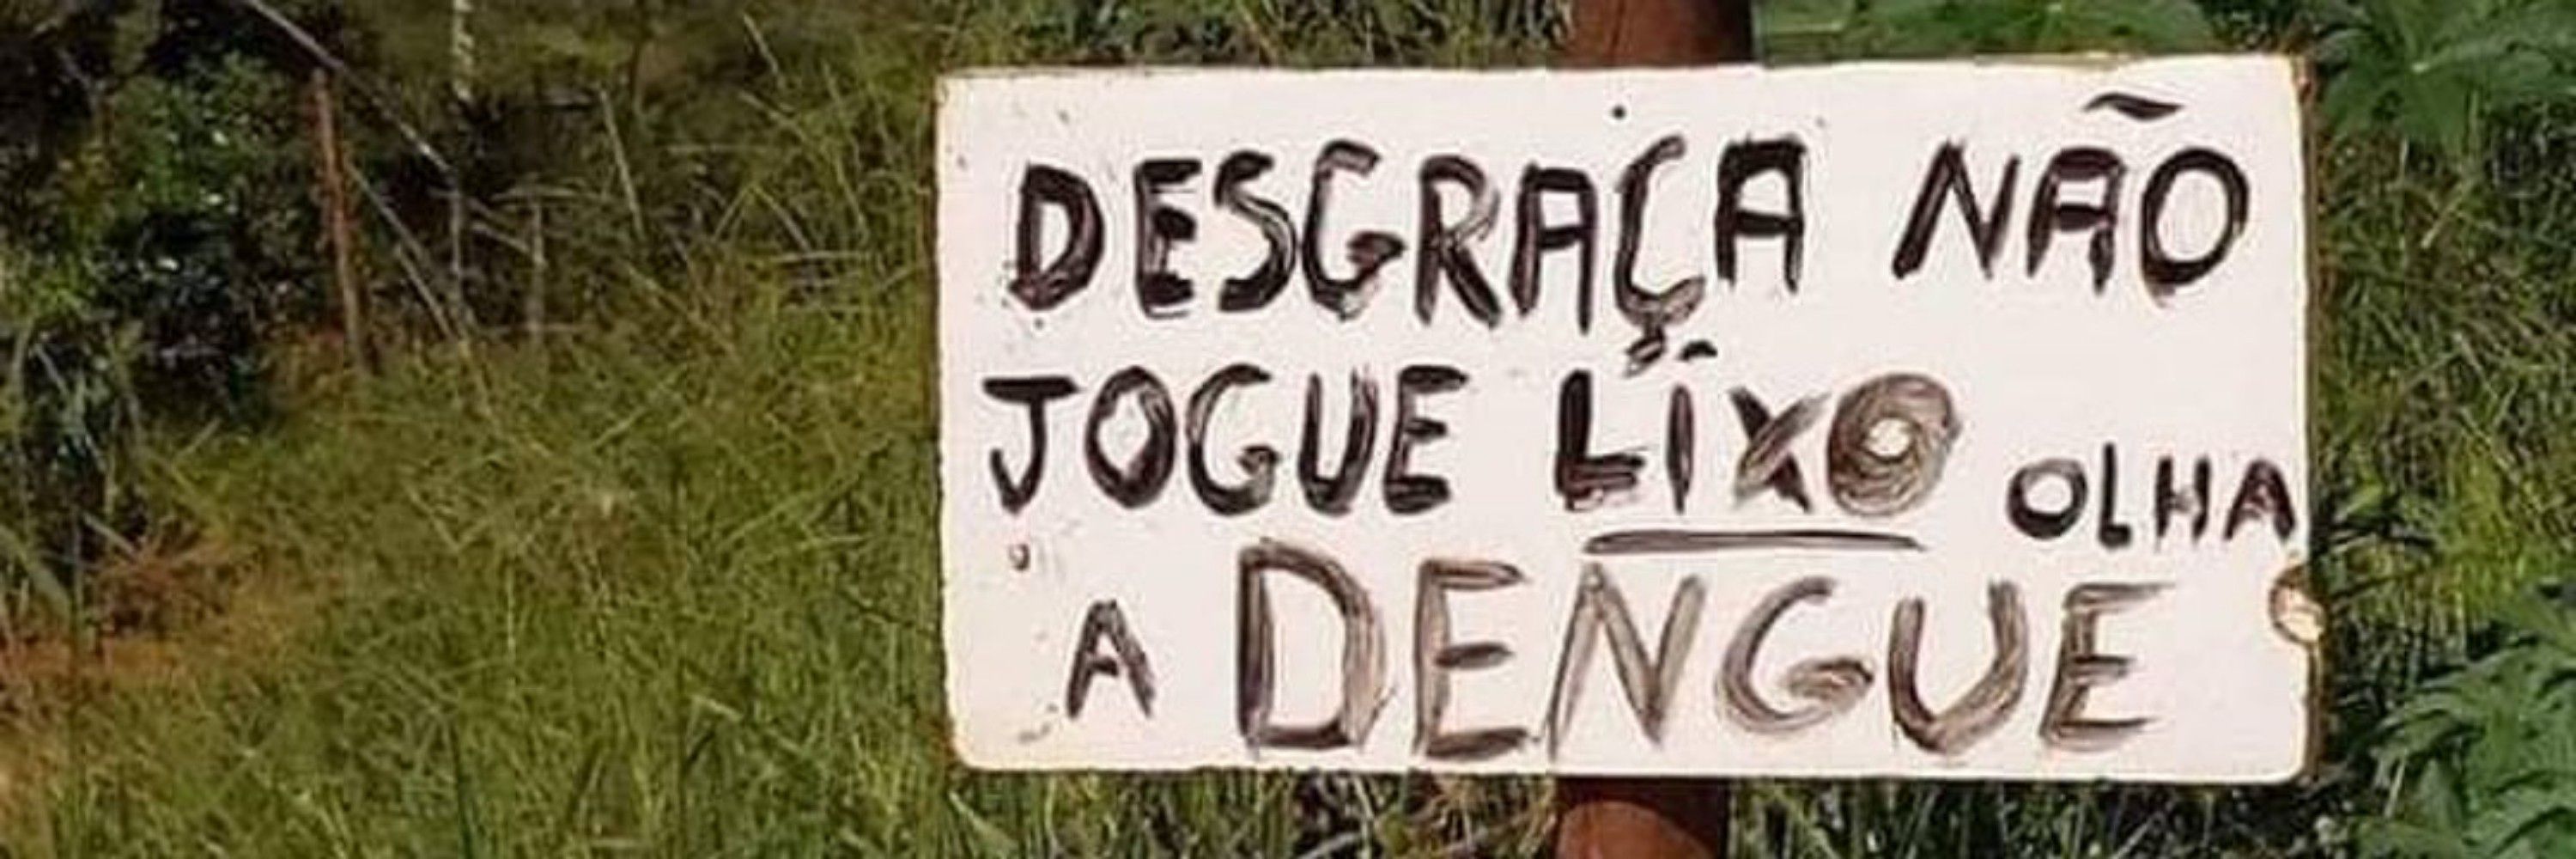 DESGRAÇA NÃO
JOGUE LÍXO OLHA
A DENGUE